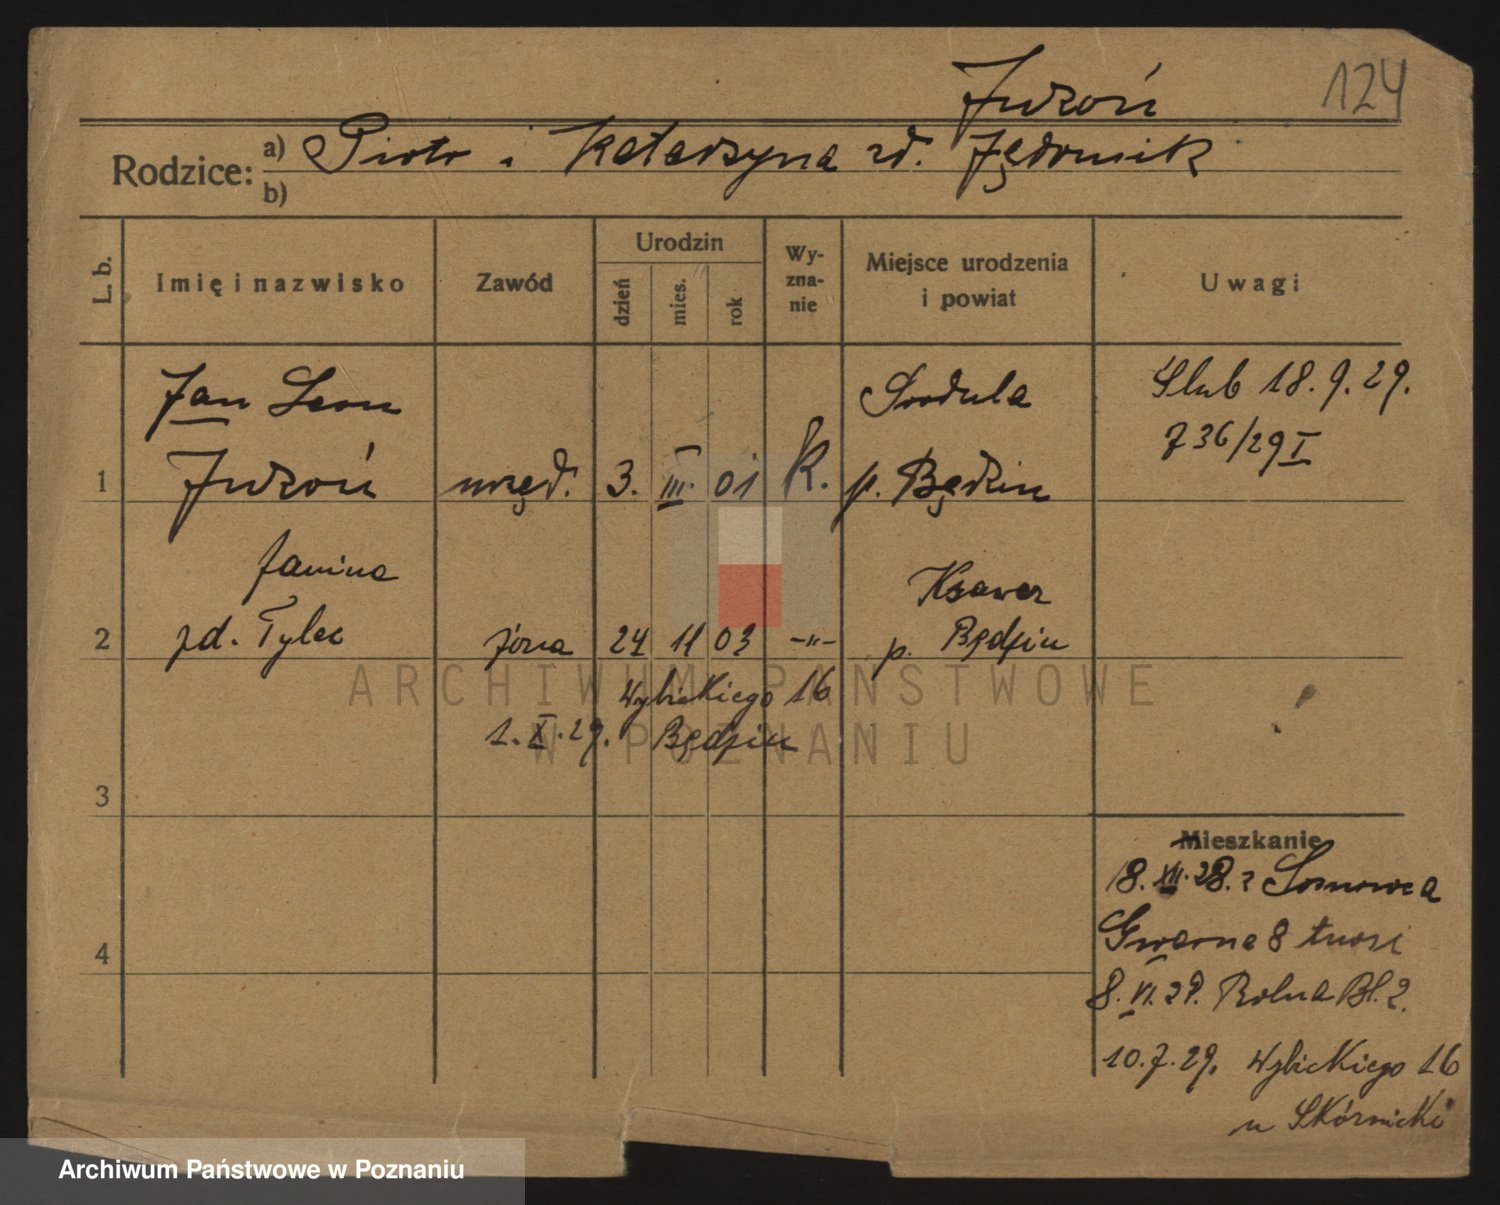 Juroń
124
Rodzice: a) Piotr i Katarzyna zd. Jędrusik
b)
L. b.
Imię i nazwisko
Zawód
Urodzin
dzień
mies.
rok
Wy-
zna-
nie
Miejsce urodzenia
i powiat
Uwagi
Jan Leon
Środula
Ślub 18.9.29.
736/29 I
1 Juroń urzęd. 3. III. 01 k. p. Będzin
Janina
Ksawer
2 zd. Tylec żona 24 11 03 -"- p. Będzin
ARCHIWUM PAŃSTWOWE
W POZNANIU
Wybickiego 16
1. X. 29. Będzin
3
Mieszkanie
18. XII. 28. z Sosnowca
Gwarna 8
4
8. VI. 29. Rolna Bl. 2.
10.7.29. Wybickiego 16
u Skórnicki
Archiwum Państwowe w Poznaniu